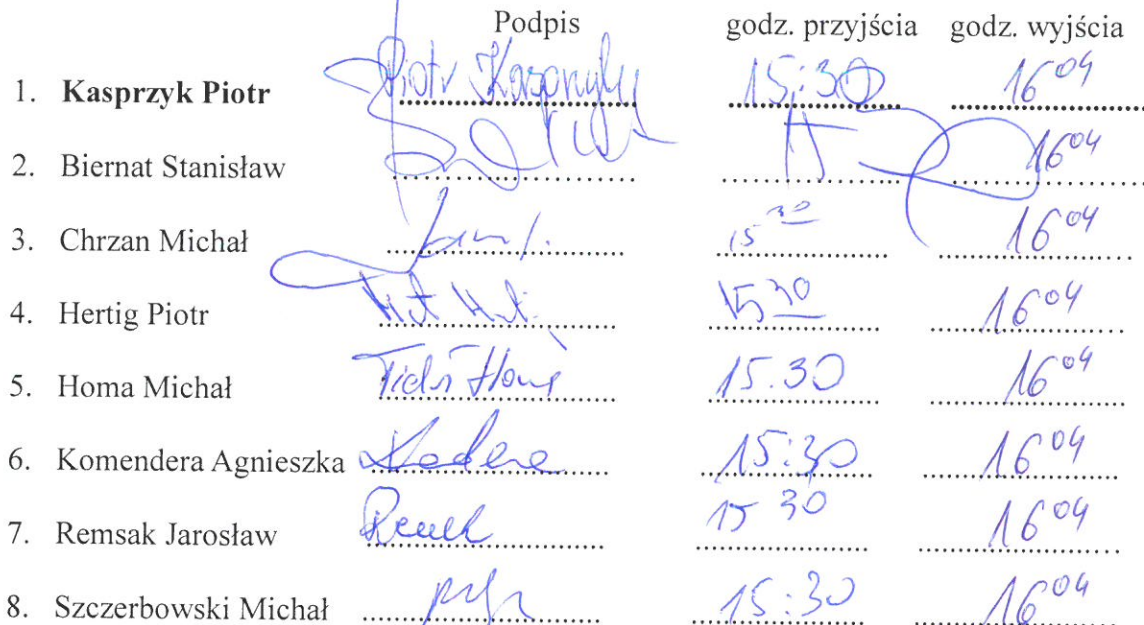 Podpis godz. przyjścia godz. wyjścia
1. Kasprzyk Piotr Piotr Kasprzyk 15:30 16⁰⁴
2. Biernat Stanisław 16⁰⁴
3. Chrzan Michał 15³⁰ 16⁰⁴
4. Hertig Piotr 15³⁰ 16⁰⁴
5. Homa Michał 15.30 16⁰⁴
6. Komendera Agnieszka 15:30 16⁰⁴
7. Remsak Jarosław 15³⁰ 16⁰⁴
8. Szczerbowski Michał 15:30 16⁰⁴